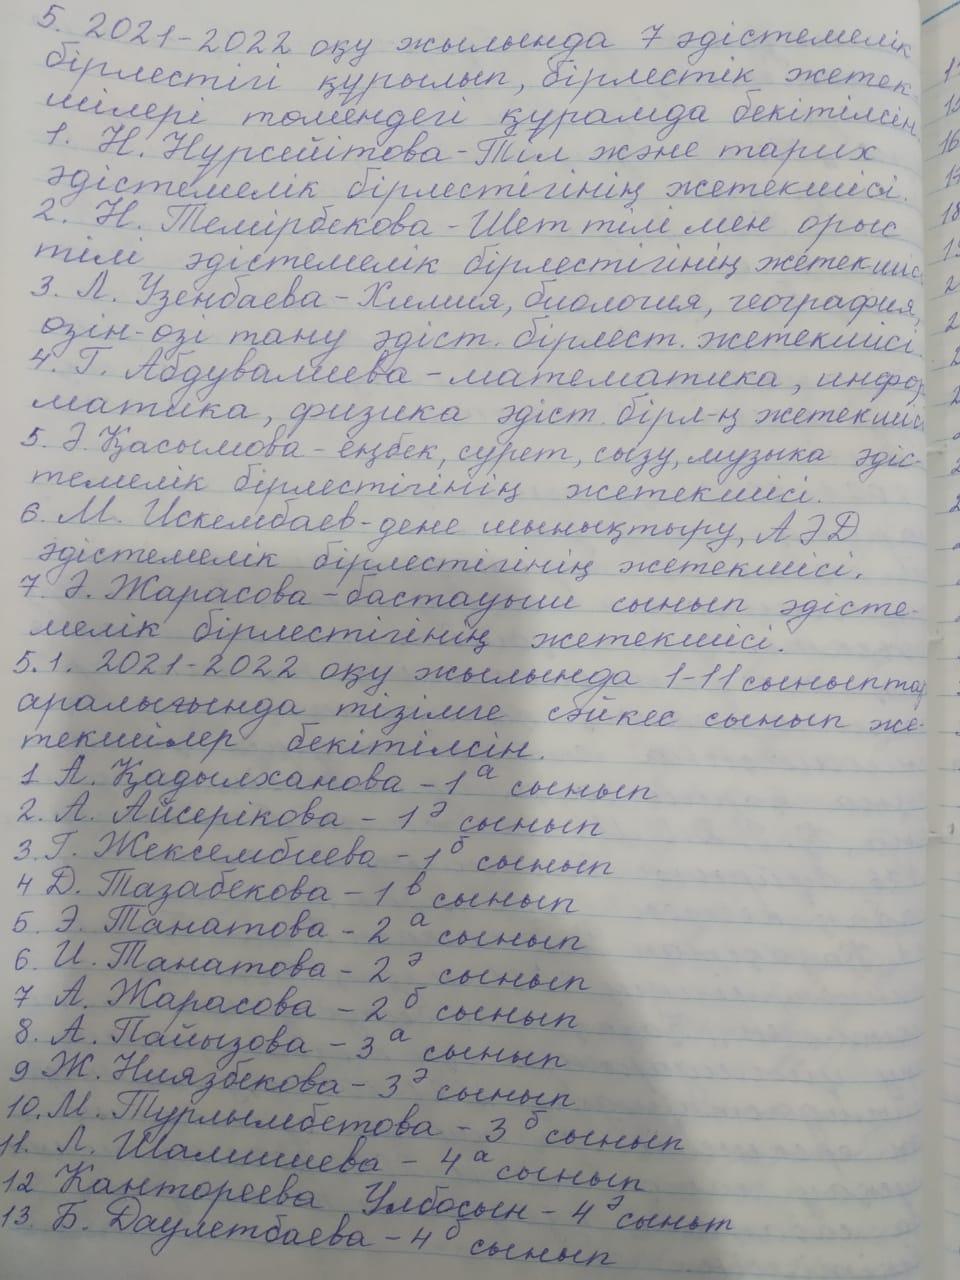 5. 2021-2022 оқу жылында 7 әдістемелік
бірлестігі құрылып, бірлестік жетек-
шілері төмендегі құрамда бекітілсін
1. Н. Нурсейітова - Тіл және тарих
әдістемелік бірлестігінің жетекшісі.
2. Н. Темірбекова - Шет тілі мен орыс
тілі әдістемелік бірлестігінің жетекшісі
3. Л. Узенбаева - Химия, биология, география,
өзін-өзі тану әдіст. бірлест. жетекшісі.
4. Г. Абдувалиева - математика, инфор
матика, физика әдіст. бірл-ң жетекшісі
5. Ә. Қасымова - еңбек, сурет, сызу, музыка әдіс-
темелік бірлестігінің жетекшісі.
6. М. Искембаев - дене шынықтыру, АӘД
әдістемелік бірлестігінің жетекшісі.
7. Ә. Жарасова - бастауыш сынып әдісте-
мелік бірлестігінің жетекшісі.
5.1. 2021-2022 оқу жылында 1-11 сыныптар
аралығында тізімге сәйкес сынып же-
текшілер бекітілсін.
1 А. Қадылханова - 1 а сынып
2. А. Айсерікова - 1 ә сынып
3. Г. Жексембиева - 1 б сынып
4 Д. Тазабекова - 1 в сынып
5. Э. Танатова - 2 а сынып
6. И. Танатова - 2 ә сынып
7 А. Жарасова - 2 б сынып
8. А. Пайызова - 3 а сынып
9 Ж. Ниязбекова - 3 ә сынып
10. М. Турлымбетова - 3 б сынып
11. Л. Шалшиева - 4 а сынып
12 Кантореева Улбосын - 4 ә сынып
13. Б. Даулетбаева - 4 б сынып